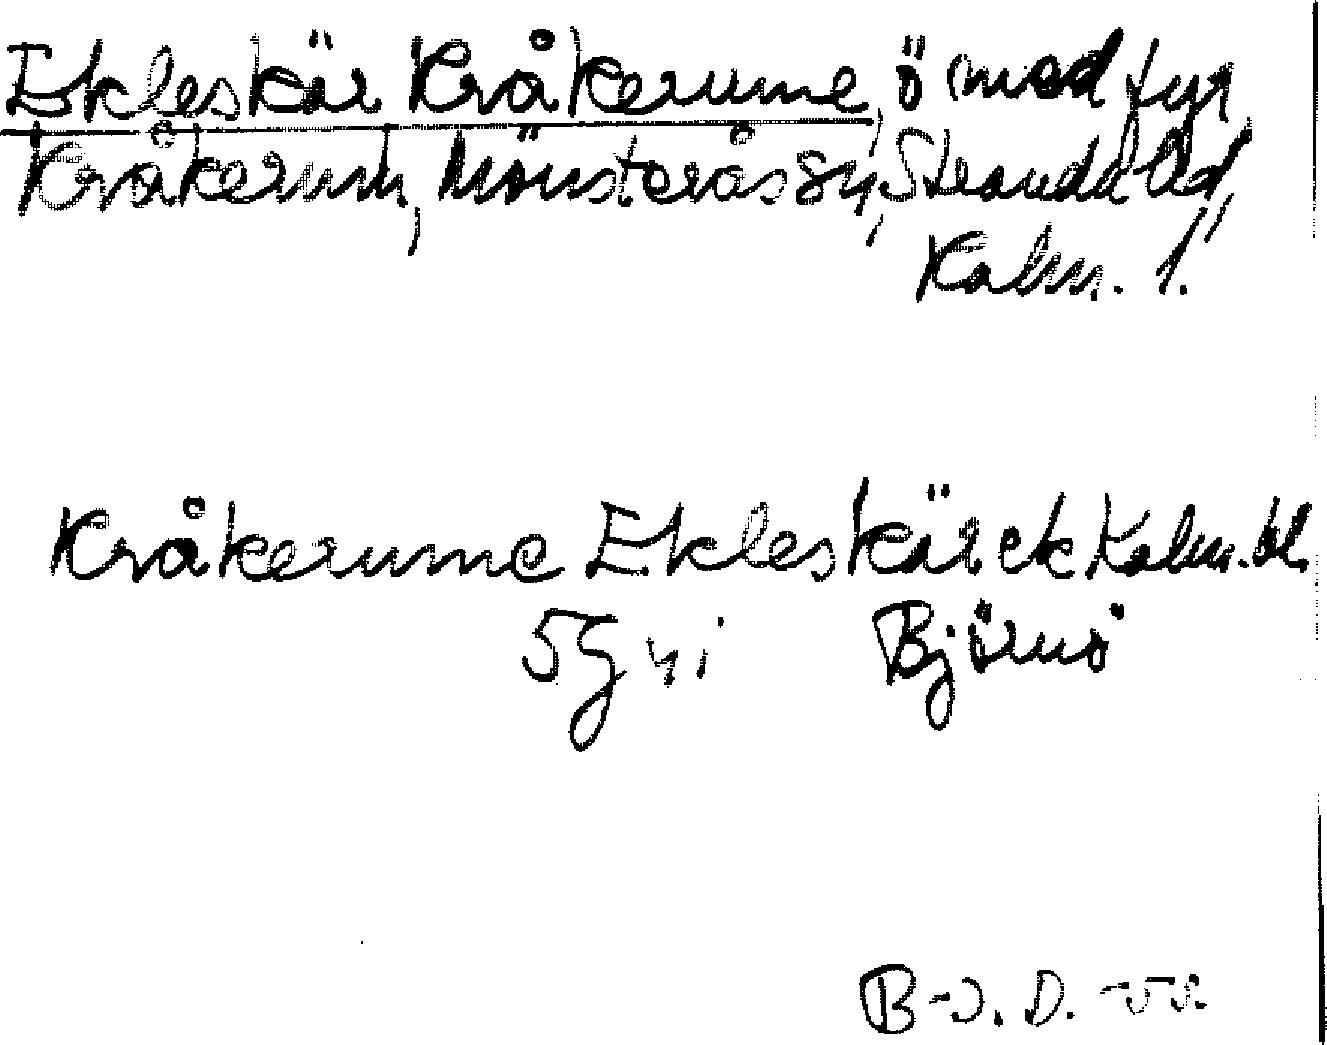 Ekleskär Kråkerume, ö med fyr
Kråkerum, Mönsterås sn, Stranda hd,
Kalm. l.
Kråkerume Ekleskär ek Kalm. bl.
5G Björnö
B-J. D. -55.